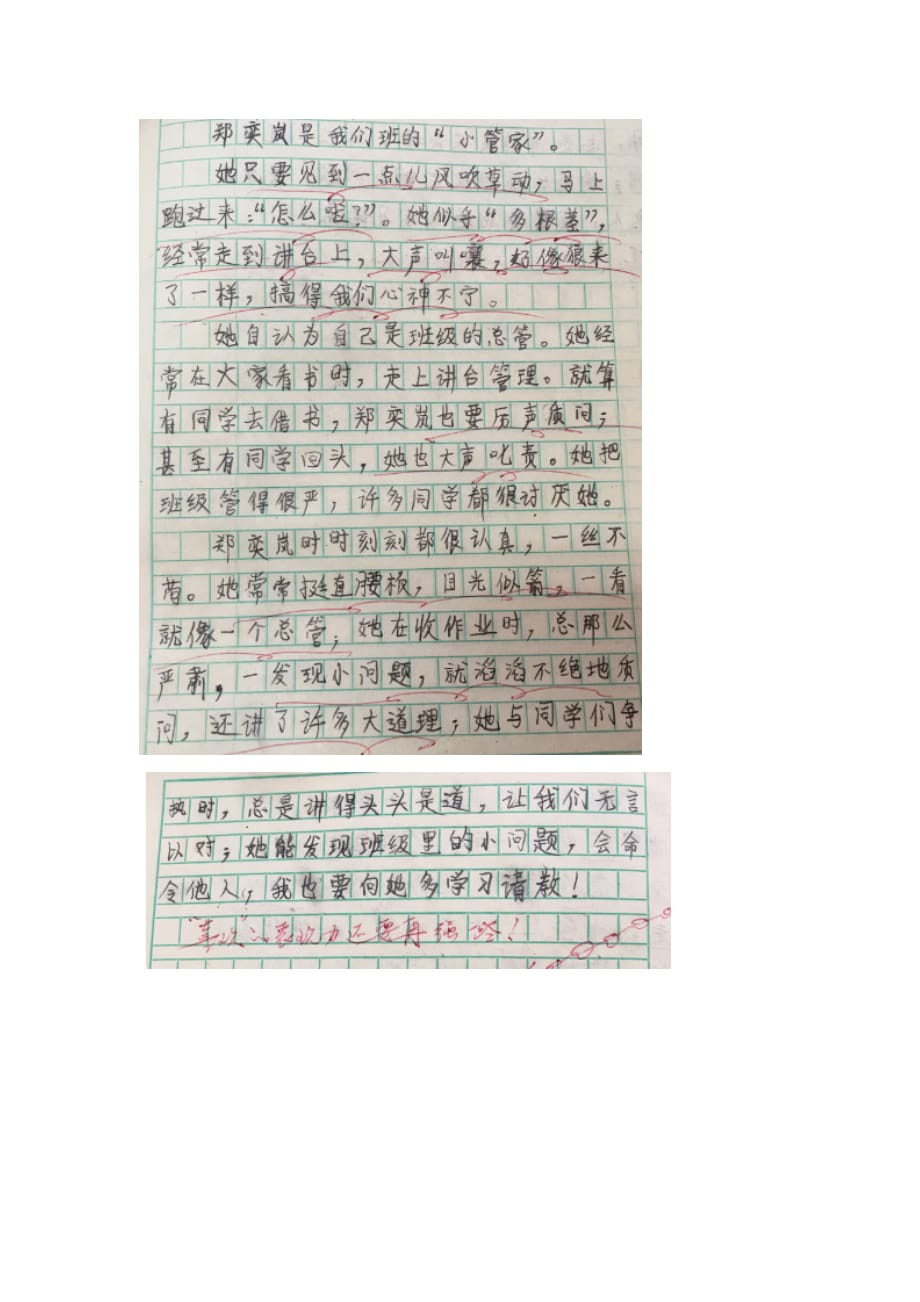 郑奕岚是我们班的“小管家”。
她只要见到一点儿风吹草动，马上
跑过来：“怎么啦？”。她似乎“多根差”，
经常走到讲台上，大声叫嚷，好像狼来
了一样，搞得我们心神不宁。
她自认为自己是班级的总管。她经
常在大家看书时，走上讲台管理。就算
有同学去借书，郑奕岚也要厉声质问；
甚至有同学回头，她也大声叱责。她把
班级管得很严，许多同学都很讨厌她。
郑奕岚时时刻刻都很认真，一丝不
苟。她常常挺直腰板，目光似箭，一看
就像一个总管；她在收作业时，总那么
严肃，一发现小问题，就滔滔不绝地质
问，还讲了许多大道理；她与同学们争
执时，总是讲得头头是道，让我们无言
以对；她能发现班级里的小问题，会命
令他人，我也要向她多学习请教！
还要再